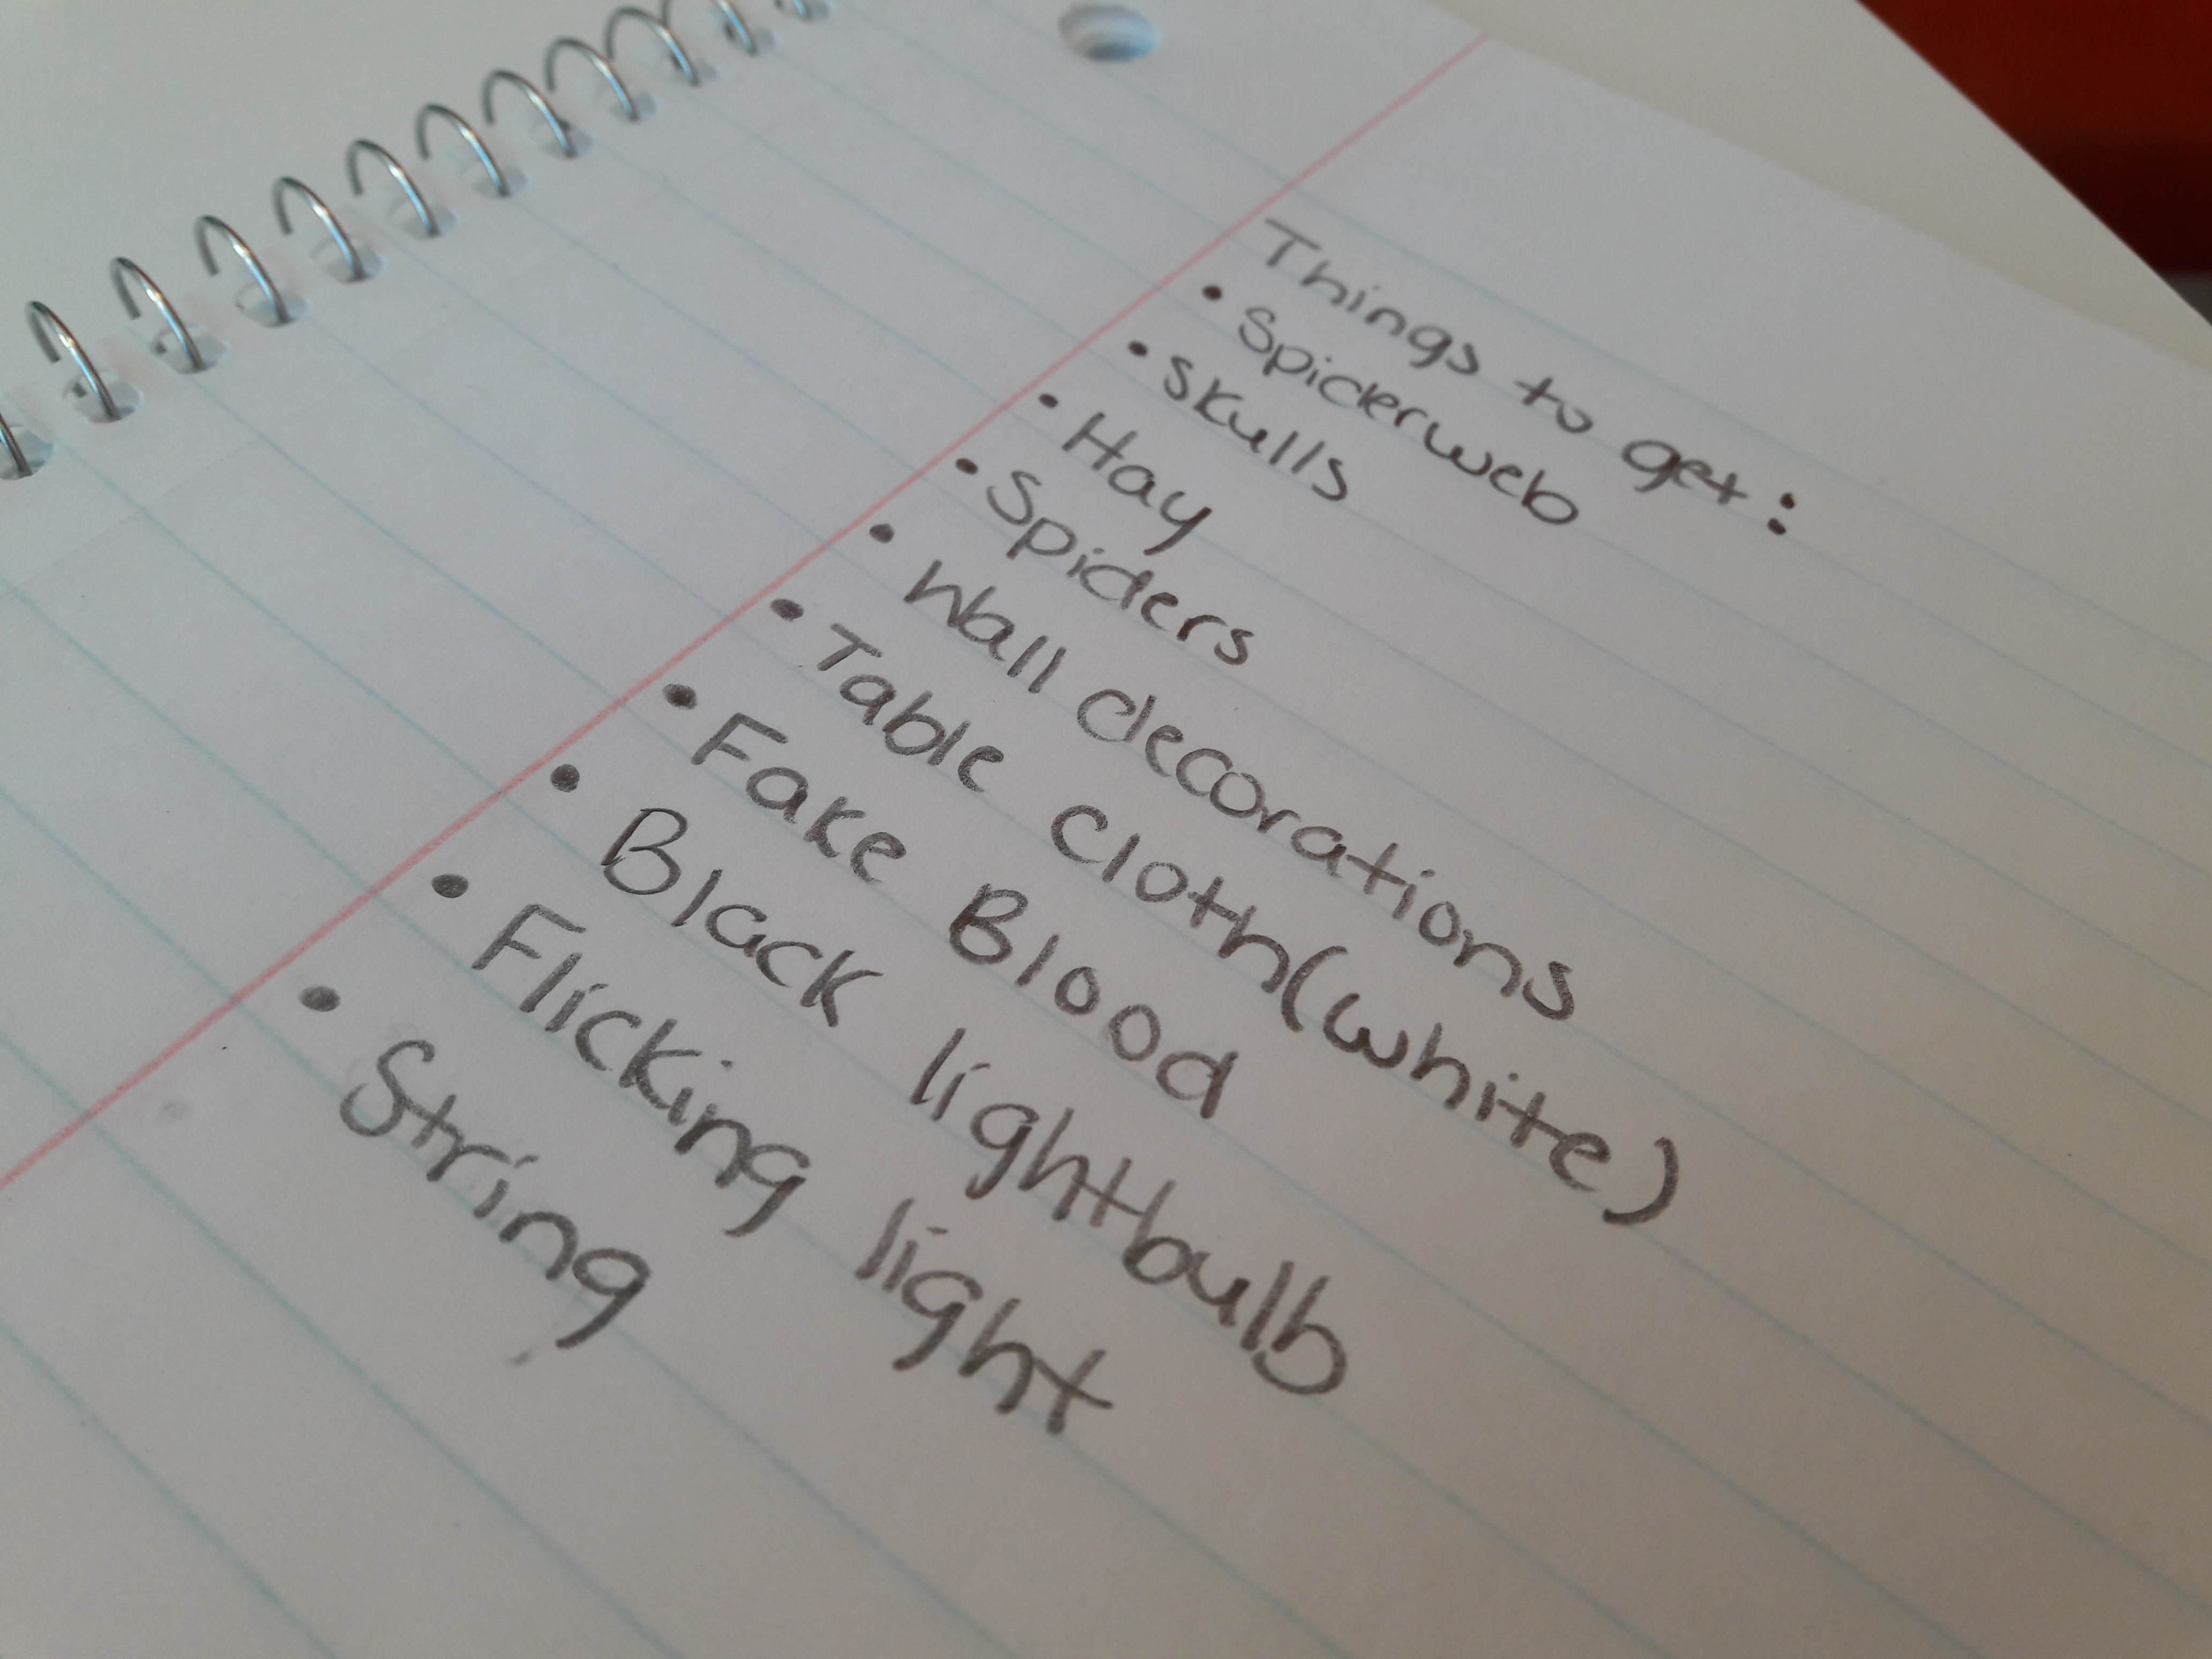 Things to get:
• Spiderweb
• skulls
• Hay
• Spiders
• Wall decorations
• Table Cloth(white)
• Fake Blood
• Black lightbulb
• Flicking light
• String